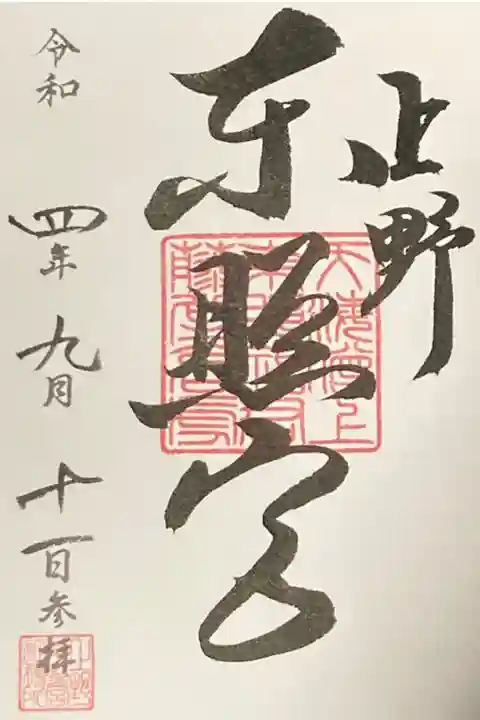 上野
東照宮
令和 四年 九月 十一日参拝